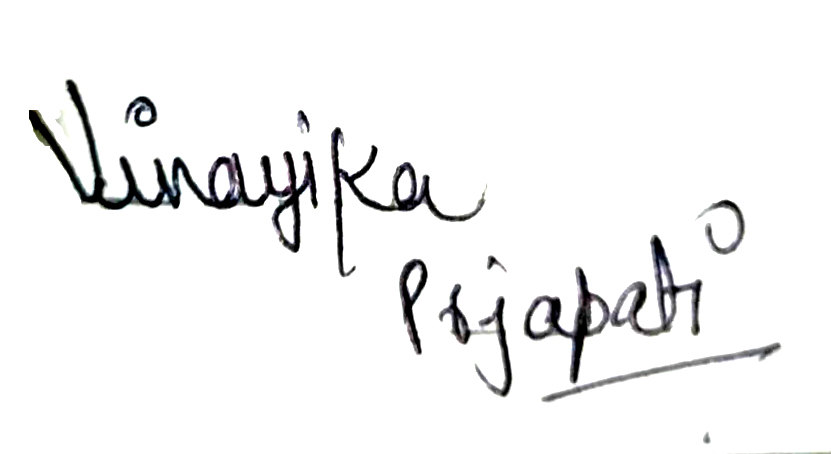 Vinayika
Prjapati